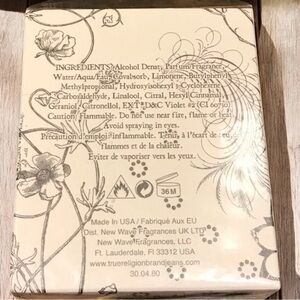 INGREDIENTS: Alcohol Denat, Parfum/Fragrance,
Water/Aqua/Eau, Covabsorb, Limonene, Butylphenyl
Methylpropional, Hydroxyisohexyl 3-Cyclohexene
Carboxaldehyde, Linalool, Citral, Hexyl Cinnamal,
Geraniol, Citronellol, EXT. D&C Violet #2 (CI 60730)
Caution: Flammable. Do not use near fire, flame or heat.
Avoid spraying in eyes.
Précaution d'emploi: inflammable. Tenir, à l'écart de feu,
flammes et de la chaleur.
Eviter de vaporiser vers les yeux.
36M
Made In USA / Fabriqué Aux EU
Dist. New Wave Fragrances UK LTD
New Wave Fragrances, LLC
Ft. Lauderdale, Fl 33312 USA
www.truereligionbrandjeans.com
30.04.80